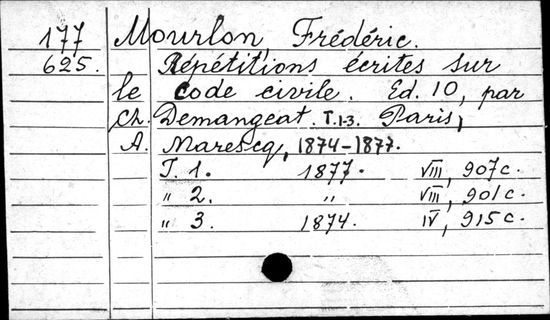 177 Mourlon, Frédéric.
625. Répétitions écrites sur
le code civile. Ed. 10, par
Ch. Demangeat. T.1-3. Paris,
A. Marescq, 1874-1877.
T. 1. 1877. VIII, 907 c.
" 2. " VIII, 901 c.
" 3. 1874. IV, 915 c.